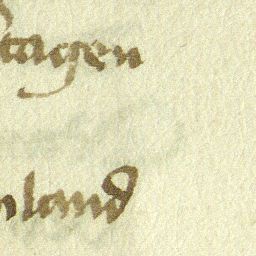 tagen
nland